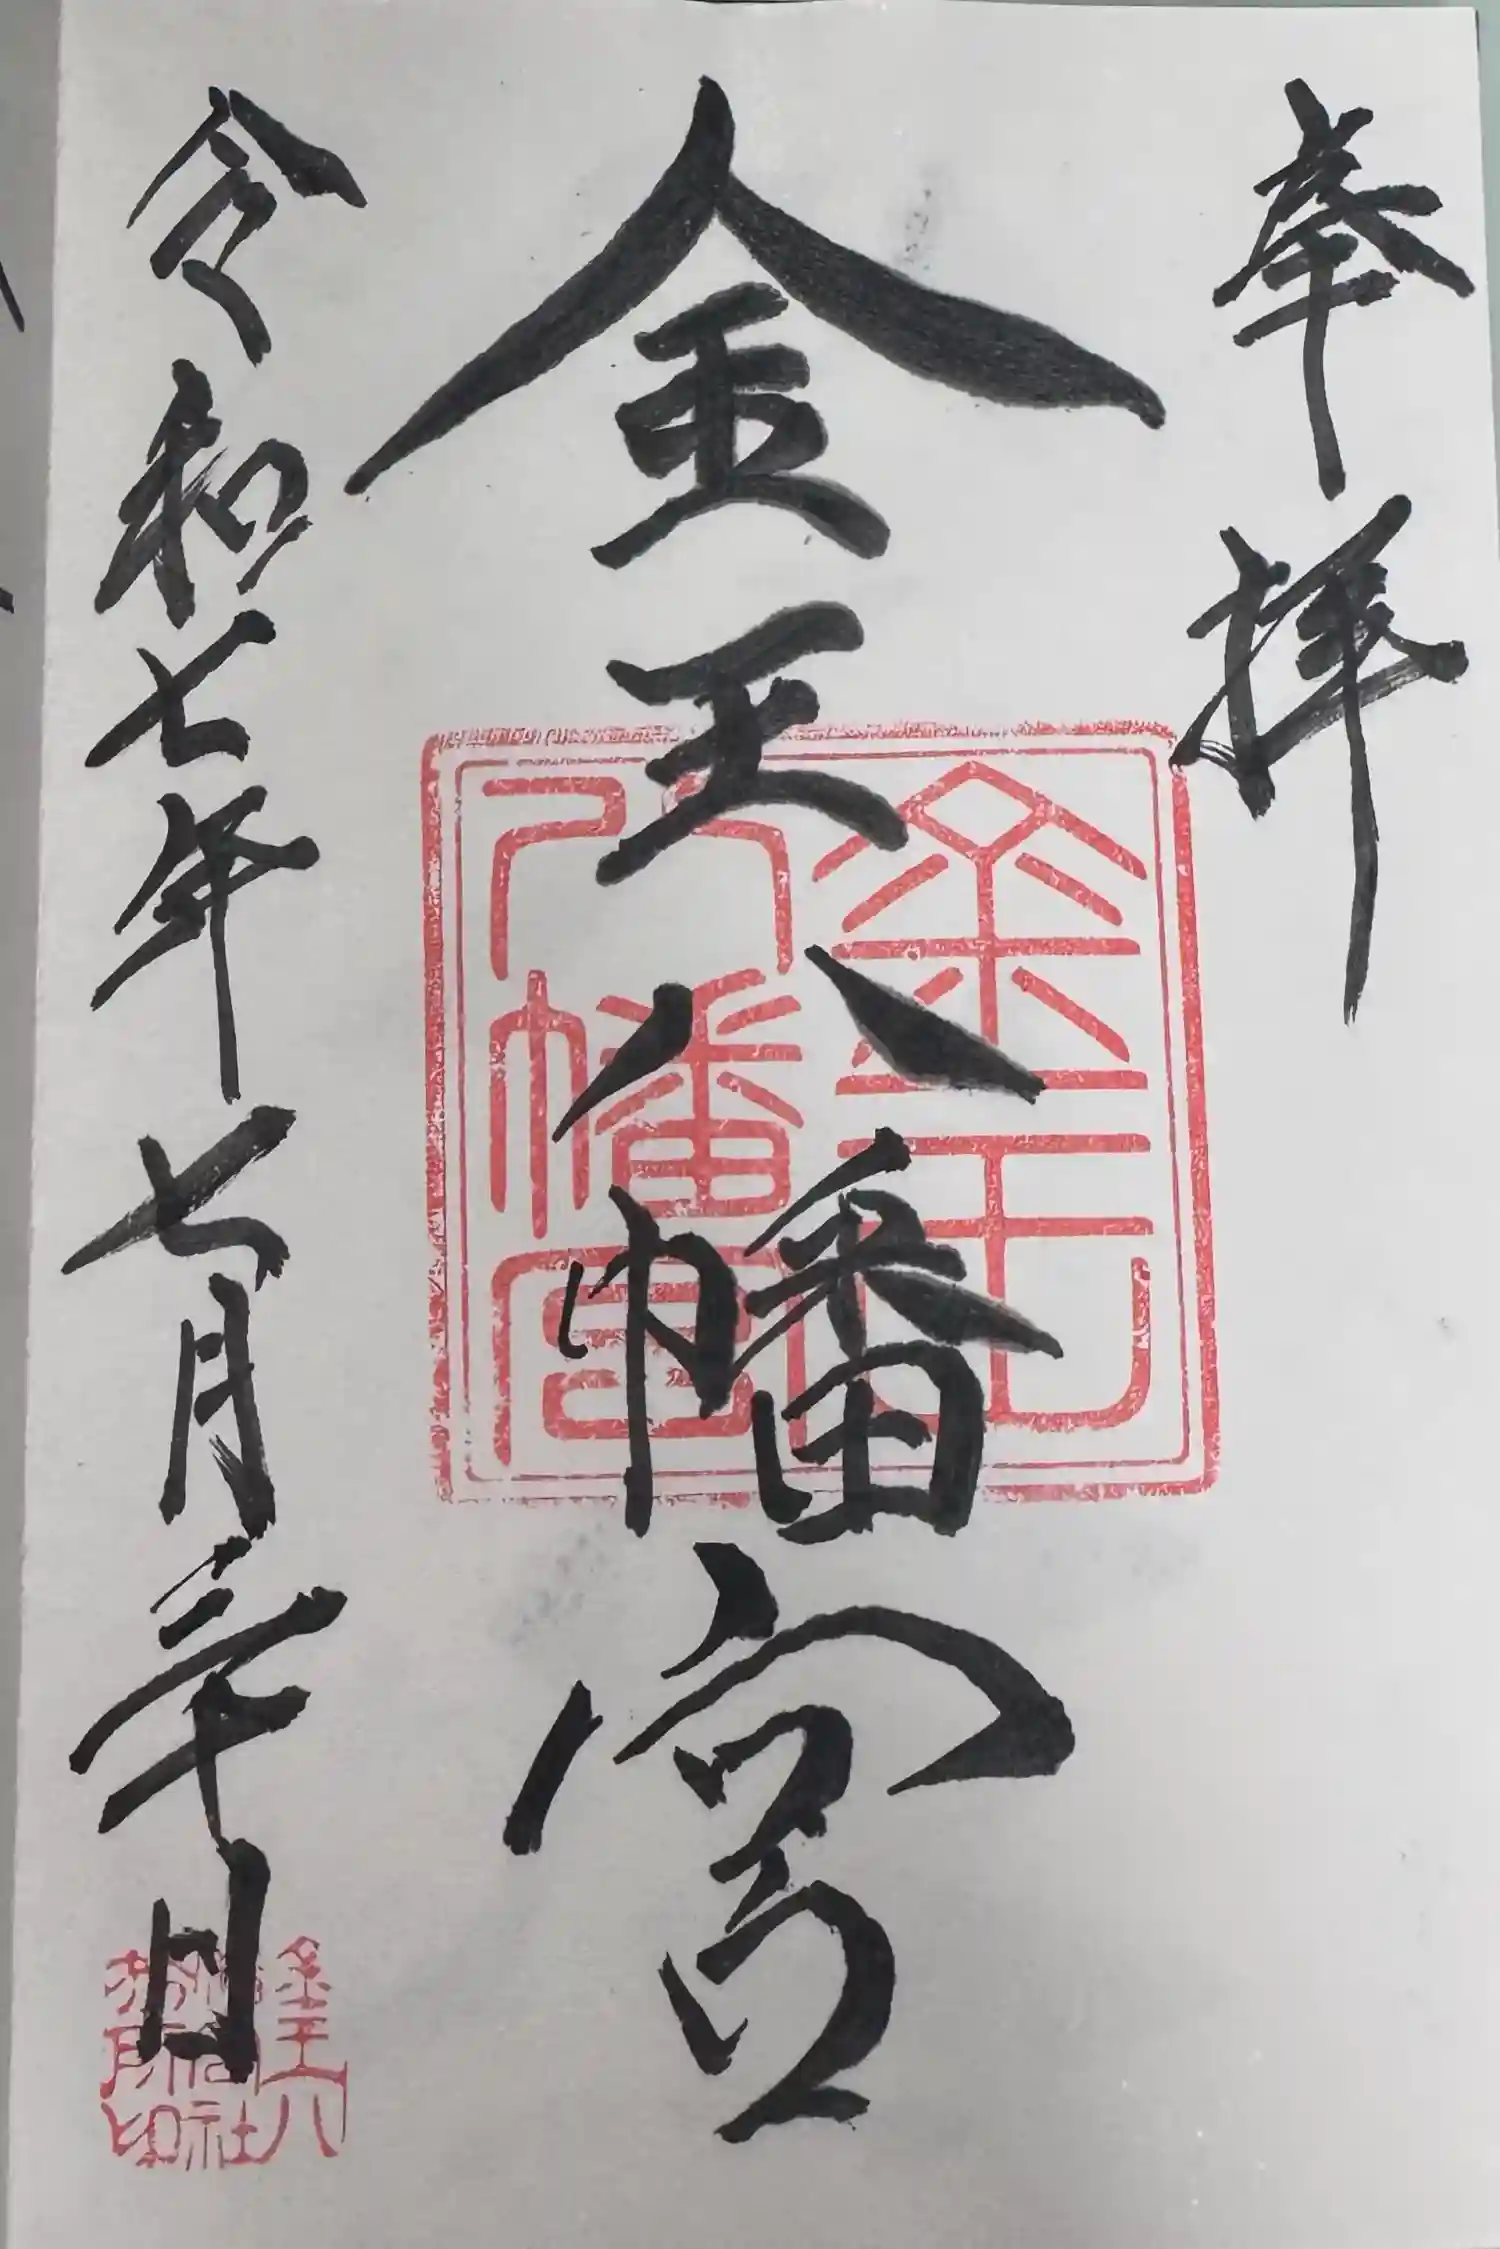 奉拝
金王八幡宮
金王八幡宮
令和七年七月三十日
金王八
社
務所印